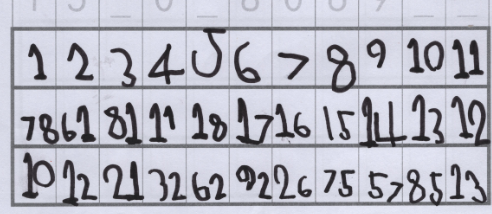 1 2 3 4 5 6 7 8 9 10 11
78 61 81 11 18 17 16 15 14 13 12
10 12 21 32 62 92 26 75 57 85 13